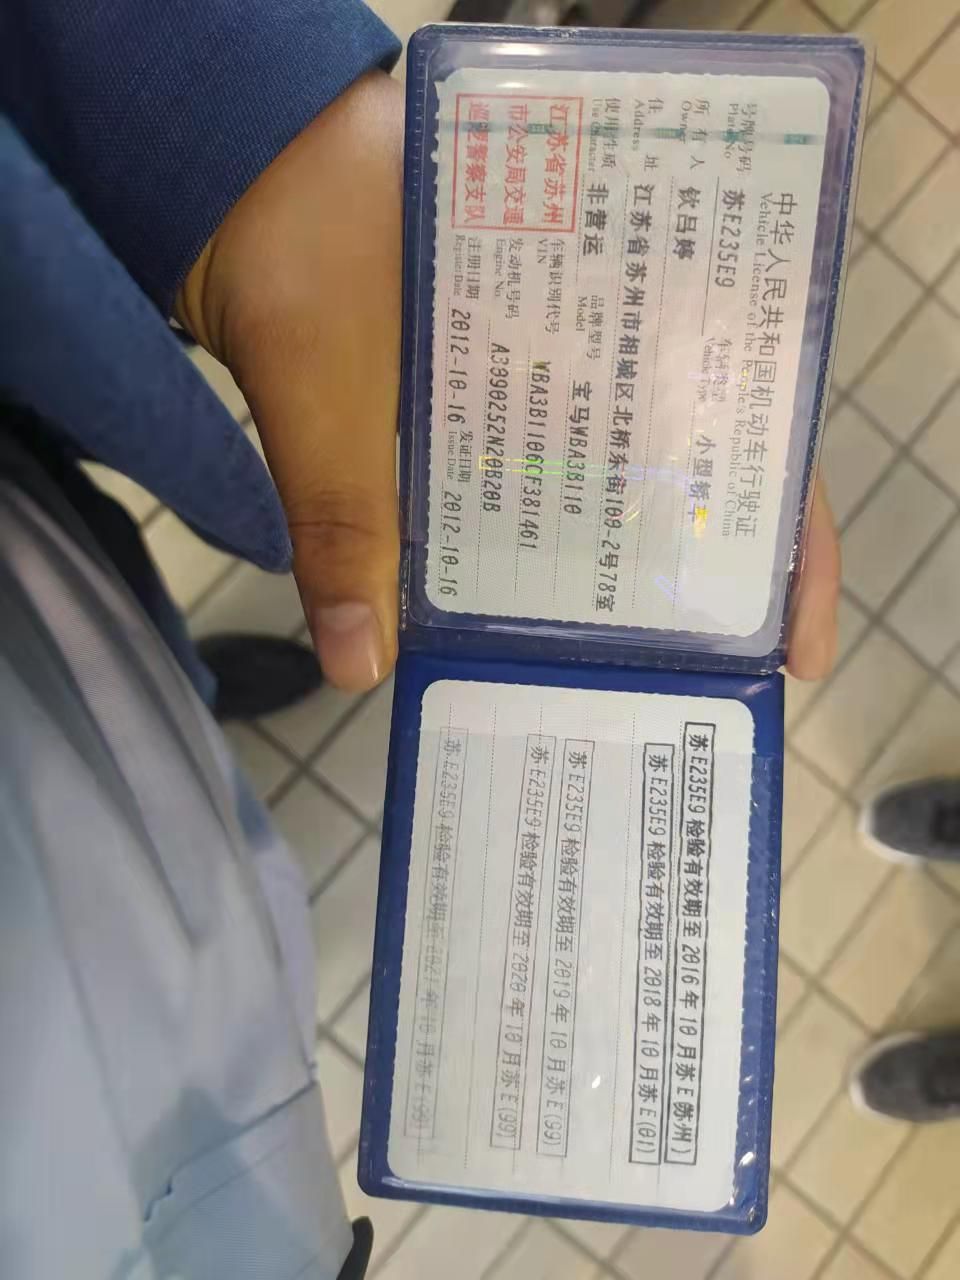 中华人民共和国机动车行驶证
Vehicle License of the People's Republic of China
号牌号码 苏E235E9 车辆类型 小型轿车
Plate No. Vehicle Type
所有人 钦吕婷
Owner
住址 江苏省苏州市相城区北桥东街109-2号78室
Address
使用性质 非营运 品牌型号 宝马WBA3B110
Use Character Model
江苏省苏州
市公安局交通
巡逻警察支队
车辆识别代号 WBA3B1106CF381461
VIN
发动机号码 A3990252N20B20B
Engine No.
注册日期 2012-10-16 发证日期 2012-10-16
Register Date Issue Date
苏E235E9 检验有效期至 2016 年 10 月 苏E(苏州)
苏E235E9 检验有效期至 2018 年 10 月苏E(01)
苏E235E9 检验有效期至 2019 年 10 月苏E(99)
苏E235E9 检验有效期至 2020 年 10 月苏E(99)
苏E235E9 检验有效期至 2021 年 10 月苏E(99)